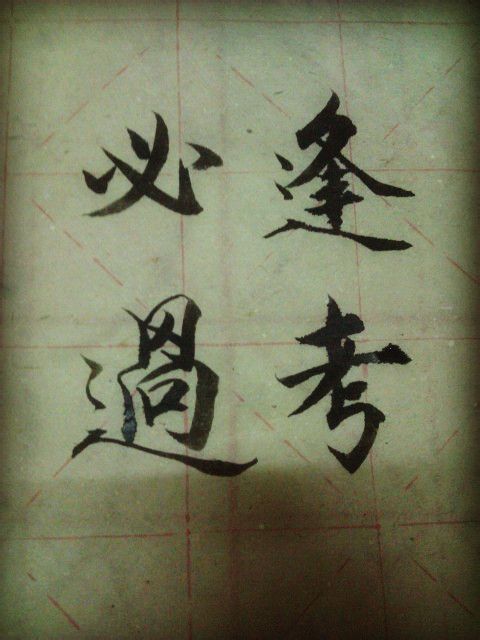 逢考
必過